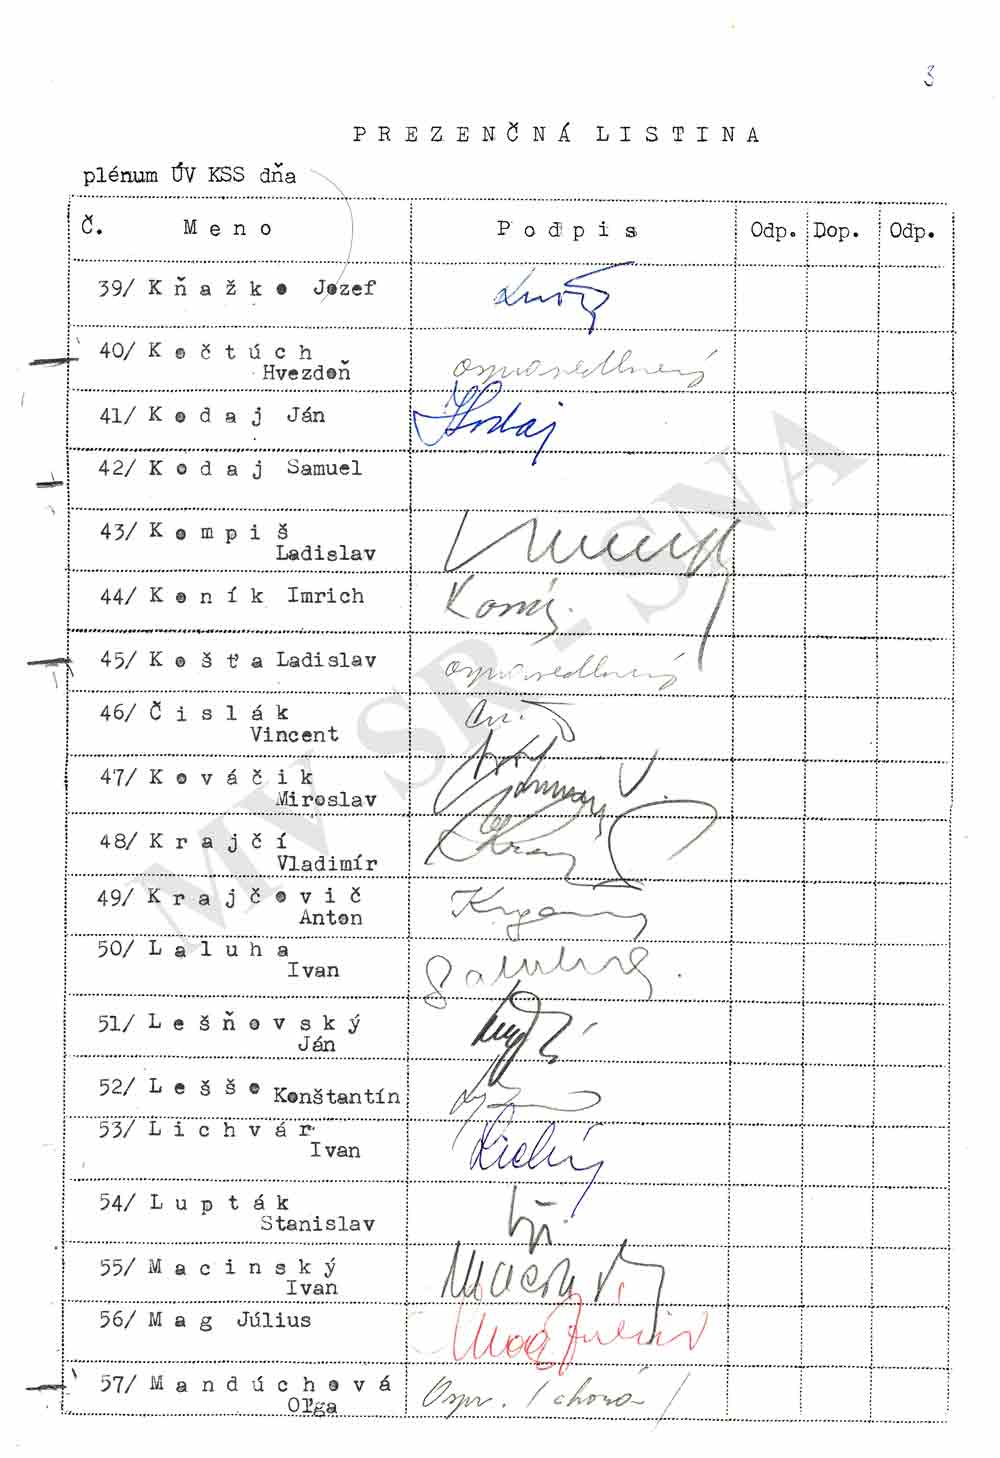 3
PREZENČNÁ LISTINA
plénum ÚV KSS dňa
Č. Meno Podpis Odp. Dop. Odp.
39/ Kňažko Jozef
40/ Kočtúch
Hvezdoň ospravedlnený
41/ Kodaj Ján Kodaj
42/ Kodaj Samuel
43/ Kompiš
Ladislav
44/ Koník Imrich
45/ Košťa Ladislav ospravedlnený
46/ Čislák
Vincent
47/ Kováčik
Miroslav
48/ Krajčí
Vladimír
49/ Krajčovič
Anton
50/ Laluha
Ivan
51/ Lešňovský
Ján
52/ Lešše Konštantín
53/ Lichvár
Ivan
54/ Lupták
Stanislav
55/ Macinský
Ivan
56/ Mag Július Mag Július
57/ Mandúchová
Oľga Ospr. /chorá/
MV SR - SNA